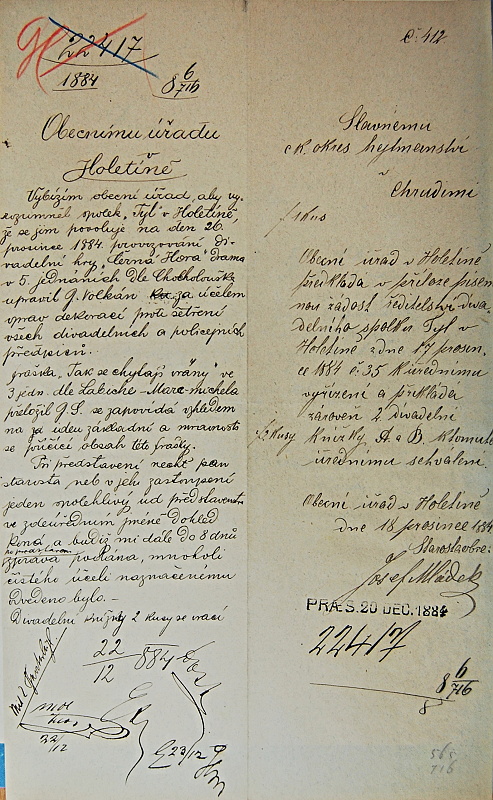 22417
1884
8 6/716
Obecnímu úřadu
v
Holetíně
Vybízím obecní úřad, aby vy-
rozuměl spolek „Tyl" v Holetíně,
že se jim povoluje na den 26.
prosince 1884 provozování di-
vadelní hry „Černá Hora" drama
v 5 jednáních dle Chocholouška
upravil G. Volkán za účelem
oprav dekorací proti šetření
všech divadelních a policejních
předpisů.
fraška „Tak se chytají vrány" ve
3 jedn. dle Labiche-Marc-michela
přeložil G. S. se zapovídá vzhledem
na její ideu základní a mravnosti
se příčící obsah této frašky.
Při představení nechť pan
starosta neb v jeho zastoupení
jeden spolehlivý úd představenstva
ve zdeúředním jméně dohled
koná, a budiž mi dále do 8 dnů
po představení
zpráva podána, mnoholi
čistého účeli naznačenému
zvedeno bylo.-
Divadelní knížky 2 kusy se vrací
22/12 884
22/12
23/12
č: 412
Slavnému
c k. okres hejtmanství
v
Chrudimi
Obecní úřad v Holetíně
předkládá v příloze písem
nou žádost ředitelství diva-
delního spolku Tyl v
Holetíně z dne 17 prosin.
ce 1884 č: 35 k úřednímu
vyřízení a přikládá
zároveň 2 divadelní
2 kusy
knížky A a B. k tomuto
úřednímu schválení.
Obecní úřad v Holetíně
dne 18 prosince 1884
Starosta obce:
Josef Mládek
PRÆS. 20 DEC. 1884
22417
8 6/716
8
565
716